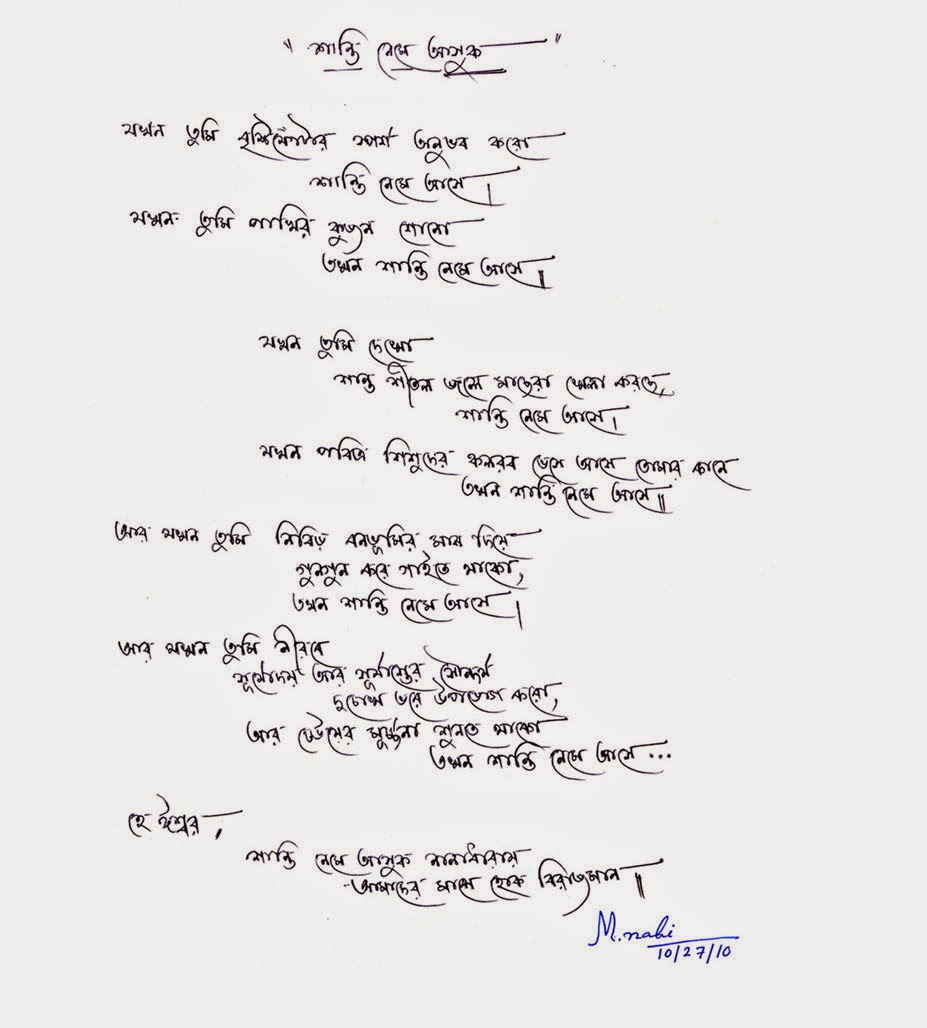 "শান্তি নেমে আসুক"
যখন তুমি বৃষ্টিফোঁটার স্পর্শ অনুভব করো
শান্তি নেমে আসে।
যখন তুমি পাখির কুজন শোনো
তখন শান্তি নেমে আসে॥
যখন তুমি দেখো
শান্ত শীতল জলে মাছেরা খেলা করছে,
শান্তি নেমে আসে।
যখন পবিত্র শিশুদের কলরব ভেসে আসে তোমার কানে
তখন শান্তি নেমে আসে॥
আর যখন তুমি নিবিড় বনভূমির মাঝ দিয়ে
গুনগুন করে গাইতে থাকো,
তখন শান্তি নেমে আসে।
আর যখন তুমি নীরবে
সূর্যোদয় আর সূর্যাস্তের সৌন্দর্য
দুচোখ ভরে উপভোগ করো,
আর ঢেউয়ের মূর্চ্ছনা শুনতে থাকো
তখন শান্তি নেমে আসে...
হে ঈশ্বর,
শান্তি নেমে আসুক নানাধারায়
আমাদের মাঝে হোক বিরাজমান॥
M.nabi
10/27/10